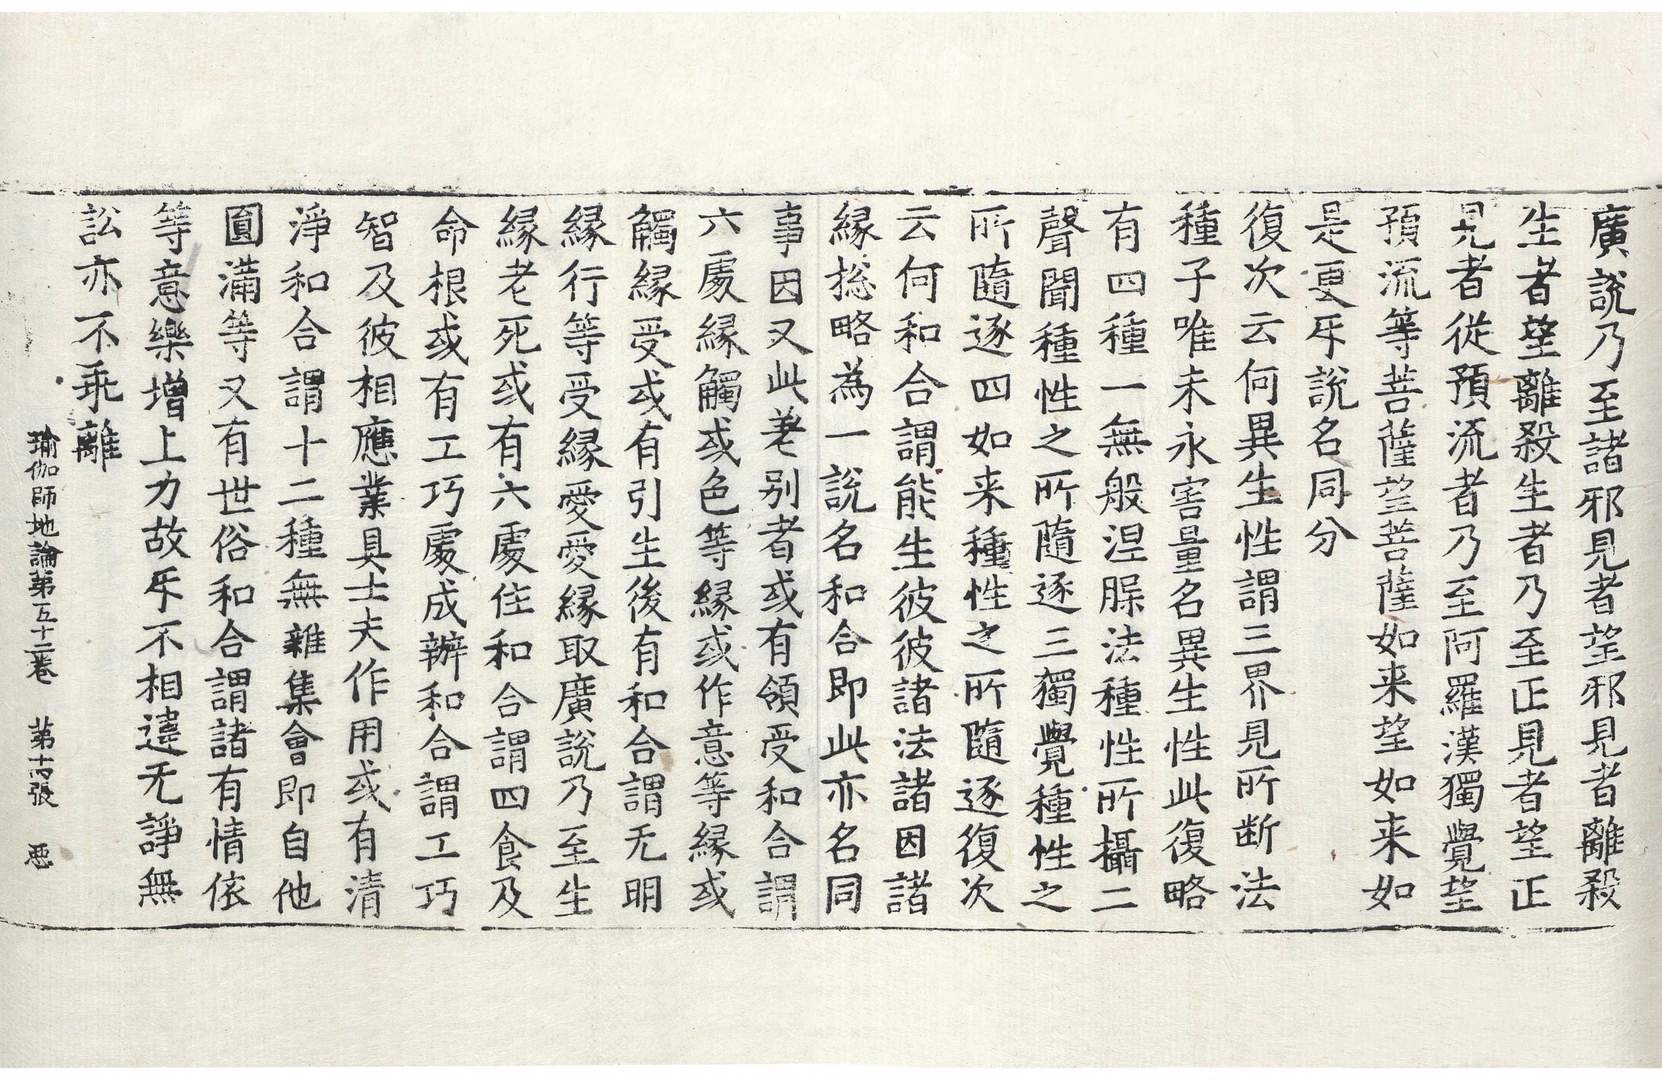 廣説乃至諸邪見者望邪見者離殺
生者望離殺生者乃至正見者望正
見者從預流者乃至阿羅漢獨覺望
預流等菩薩望菩薩如来望如来如
是更㸦說名同分
復次云何異生性謂三界見所断法
種子唯未永害量名異生性此復略
有四種一無般涅膎法種性所攝二
聲聞種性之所隨逐三獨覺種性之
所隨逐四如来種性之所隨逐復次
云何和合謂能生彼彼諸法諸因諸
縁捴略為一說名和合即此亦名同
事因又此差别者或有領受和合謂
六處縁觸或色等縁或作意等縁或
觸縁受或有引生後有和合謂无明
縁行等受縁愛愛縁取廣說乃至生
縁老死或有六處住和合謂四食及
命根或有工巧處成辦和合謂工巧
智及彼相應業具士夫作用或有清
淨和合謂十二種無難集會即自他
圓滿等又有世俗和合謂諸有情依
等意樂增上力故㸦不相違无諍無
訟亦不乖離
瑜伽師地論第五十二卷 第十六張 惡